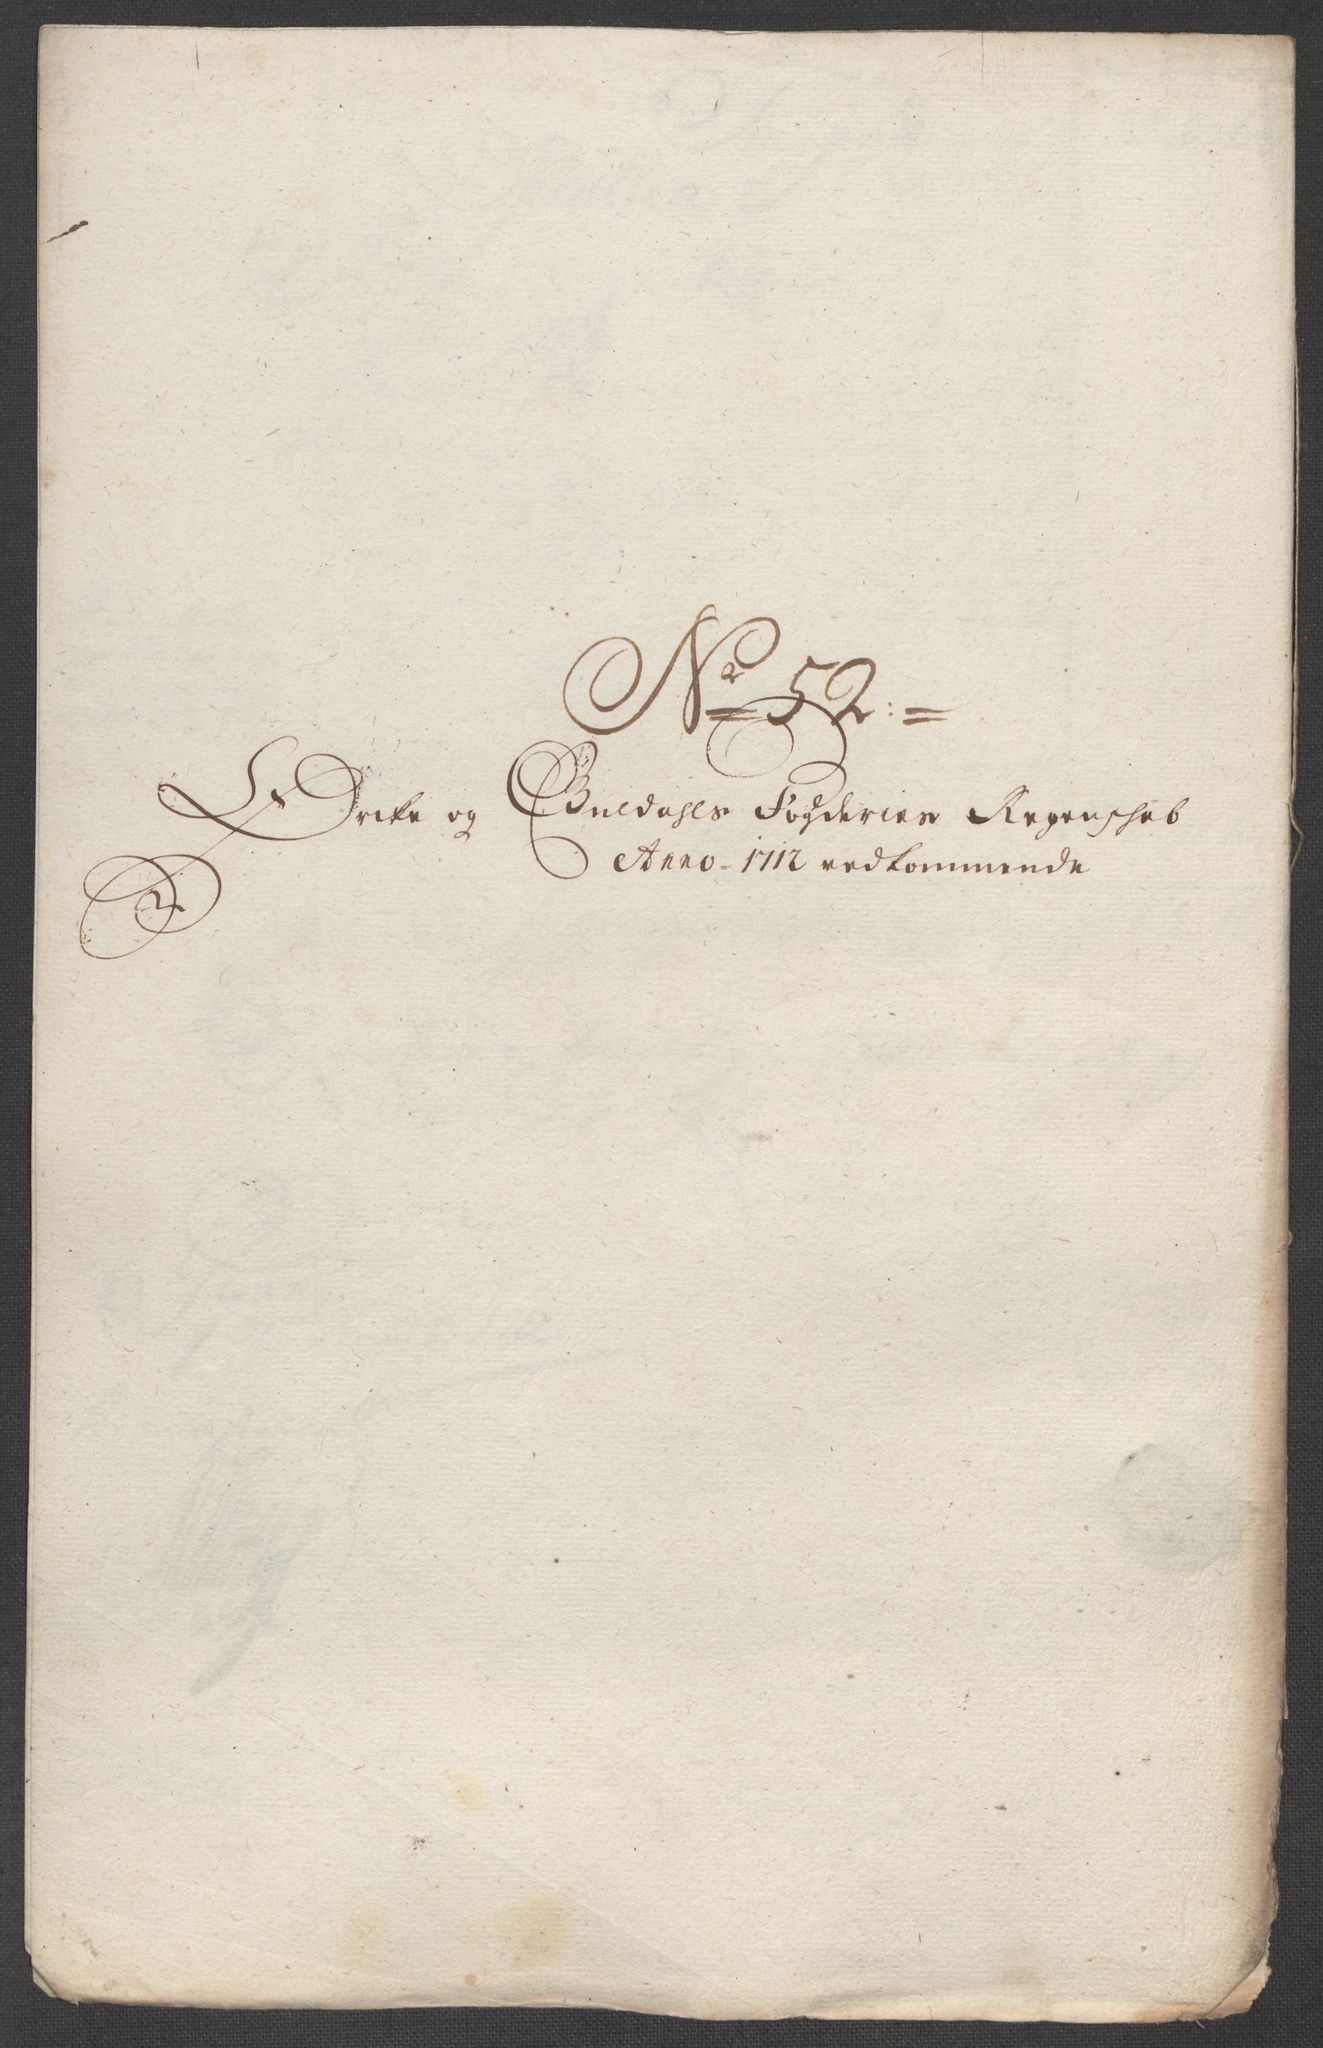 No 52:=
Orcke og Guldahls Fogderies Regenschab
Anno 1712 vedkommende